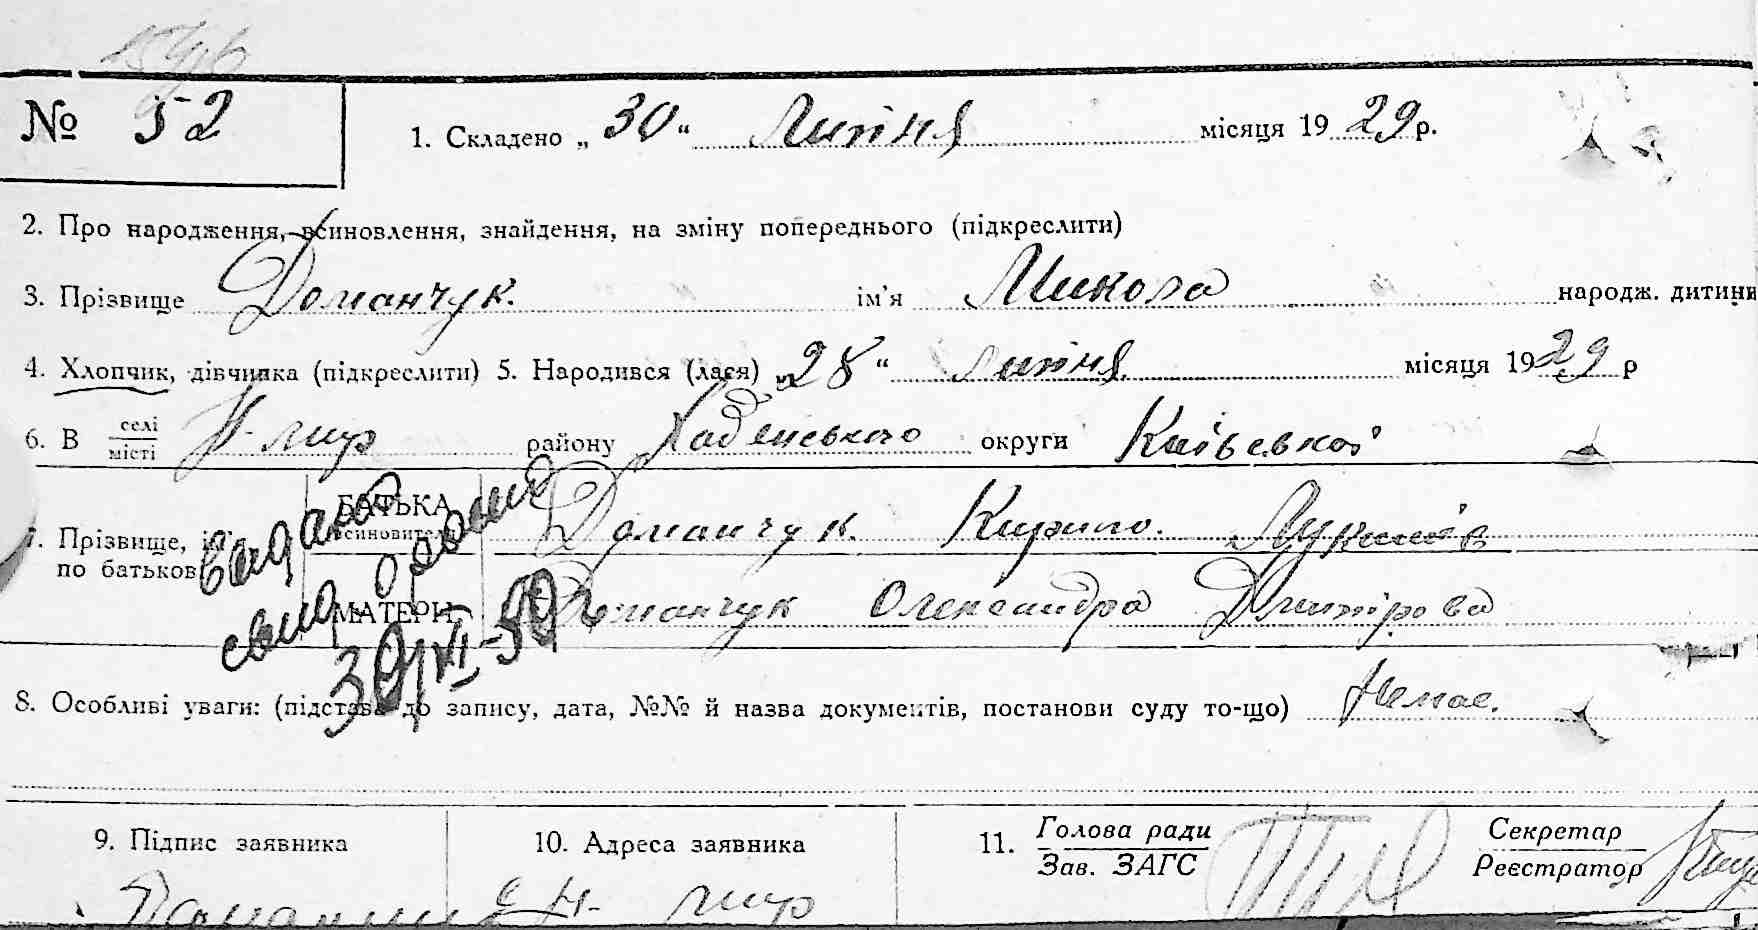 № 52
1. Складено „ 30 “ Липня місяця 19 29 р.
2. Про народження, всиновлення, знайдення, на зміну попереднього (підкреслити)
3. Прізвище Доманчук. ім'я Микола народж. дитини
4. Хлопчик, дівчинка (підкреслити) 5. Народився (лася) „ 28 “ липня місяця 19 29 р
6. В селі місті Н-мир району округи Київської
7. Прізвище, по батькові БАТЬКА Доманчук Кирило.
МАТЕРИ Доманчук Олександра Дмитрова
видано
30/VI-50
8. Особливі уваги: (підстава до запису, дата, №№ й назва документів, постанови суду то-що) Немає.
9. Підпис заявника 10. Адреса заявника 11. Голова ради Секретар
Зав. ЗАГС Реєстратор
с Н-мир